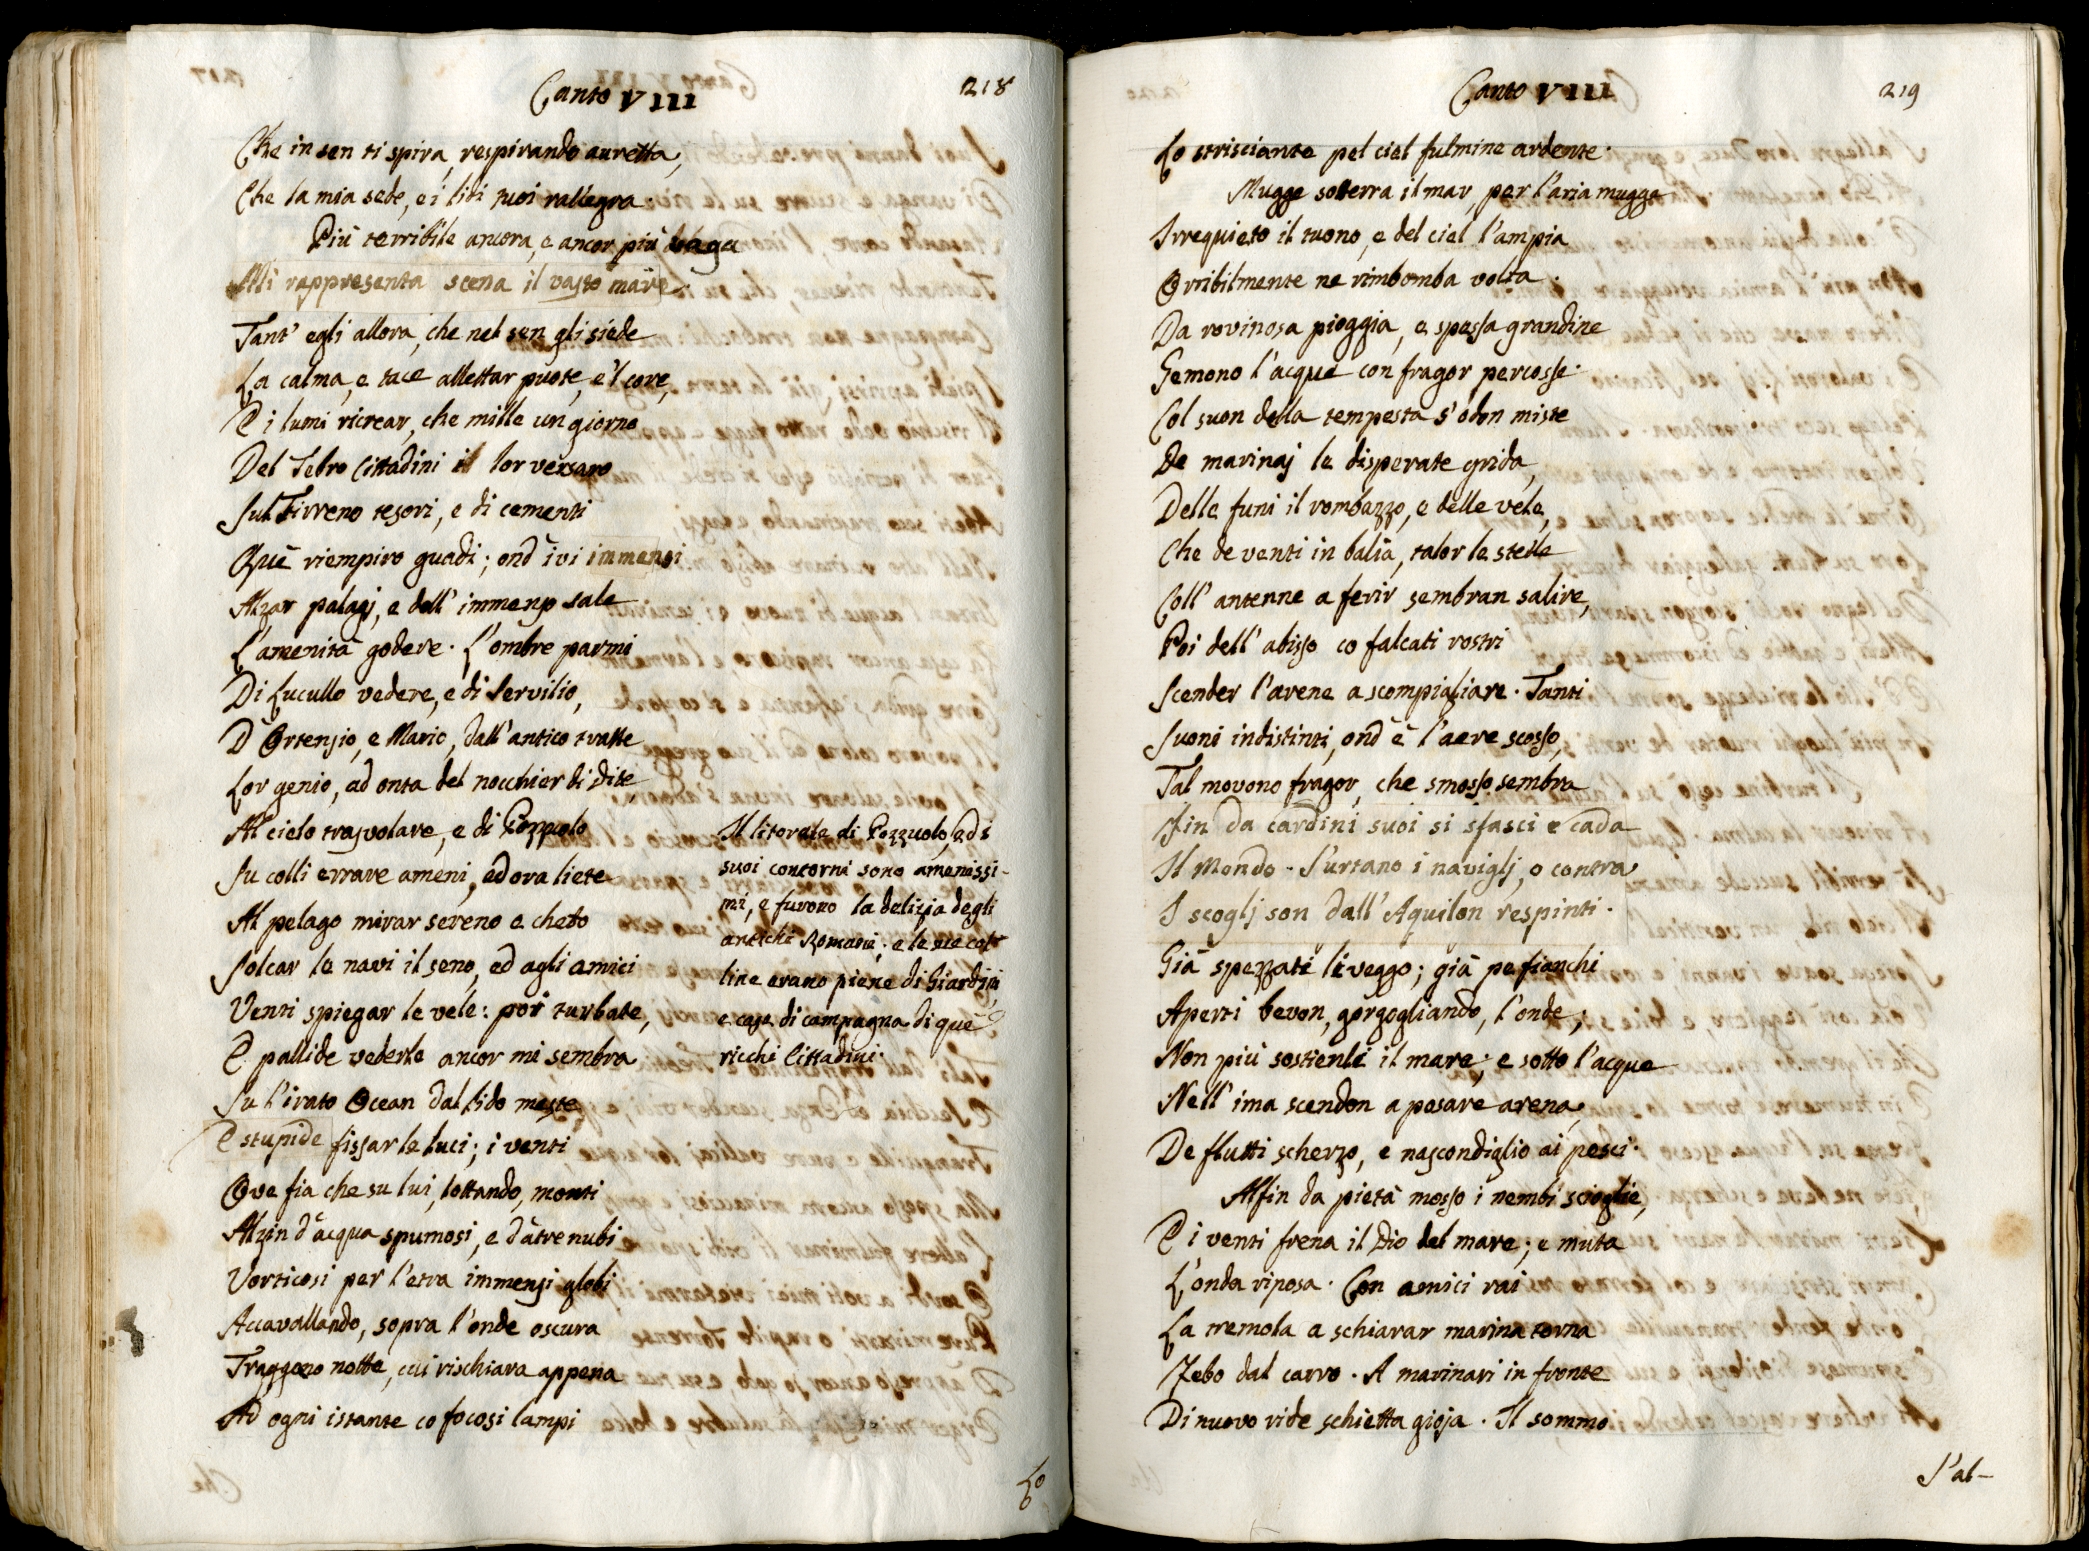 Canto VIII
218
Che in sen ti spira, respirando auretta,
Che la mia sede, e i lidi tuoi rallegra.
Più terribile ancora, e ancor più vaga
Mi rappresenta scena il vasto mare.
Tant' egli allora, che nel sen gli siede
La calma, e tace allettar puote, e 'l core,
E i lumi ricrear, che mille un giorno
Del Tebro Cittadini il lor versaro
Sul Tirreno tesori, e di cementi
Què riempiro guadi; ond' ivi immensi
Alzar palagj, e dell' immenso sale
L'amenità godere. L'ombre parmi
Di Lucullo vedere, e di Servilio,
D'Ortensio, e Mario, dall' antico tratte
Lor genio, ad onta del nocchier di Dite
Al cielo trasvolare, e di Pozzuolo
Su colli errare ameni, ed ora liete
Al pelago mirar sereno e cheto
Solcar le navi il seno, ed agli amici
Venti spiegar le vele: por turbate,
E pallide vederle ancor mi sembra
Su l'irato Ocean dal lido meste,
E stupide fissar le luci; i venti
Ove fia che su lui, lottando, monti
Alzin d'acqua spumosi, e d'atre nubi
Vorticosi per l'etra immensi globi
Accavallando, sopra l'onde oscura
Traggono notte, cui rischiara appena
Ad ogni istante co focosi lampi
Il litorale di Pozzuolo, ed i
suoi contorni sono amenissi-
mi, e furono la delizia degli
antichi Romani; e le sue col-
line erano piene di Giardini
e case di campagna di què
ricchi Cittadini.
Lo
Canto VIII
219
Lo strisciante pel ciel fulmine ardente.
Mugge sotterra il mar, per l'aria mugge
Irrequieto il tuono, e del ciel l'ampia
Orribilmente ne rimbomba volta.
Da rovinosa pioggia, e spessa grandine
Gemono l'acque con fragor percosse.
Col suon della tempesta s'odon miste
De marinaj le disperate grida,
Delle funi il rombazzo, e delle vele,
Che de venti in balìa, talor le stelle
Coll' antenne a ferir sembran salire,
Poi dell' abisso co falcati rostri
Scender l'arene a scompigliare. Tanti
Suoni indistinti, ond' è l'aere scosso,
Tal movono fragor, che smosso sembra
Fin da cardini suoi si sfasci e cada
Il Mondo. S'urtano i naviglj, o contra
I scoglj son dall' Aquilon respinti.
Già spezzati li veggo; già pe fianchi
Aperti bevon, gorgogliando, l'onde;
Non più sostienli il mare; e sotto l'acque
Nell' ima scendon a posare arena,
De flutti scherzo, e nascondiglio ai pesci.
Alfin da pietà mosso i nembi scioglie,
E i venti frena il Dio del mare; e muta
L'onda riposa. Con amici rai
La tremola a schiarar marina torna
Febo dal carro. A marinari in fronte
Di nuovo ride schietta gioja. Il sommo
S'al-